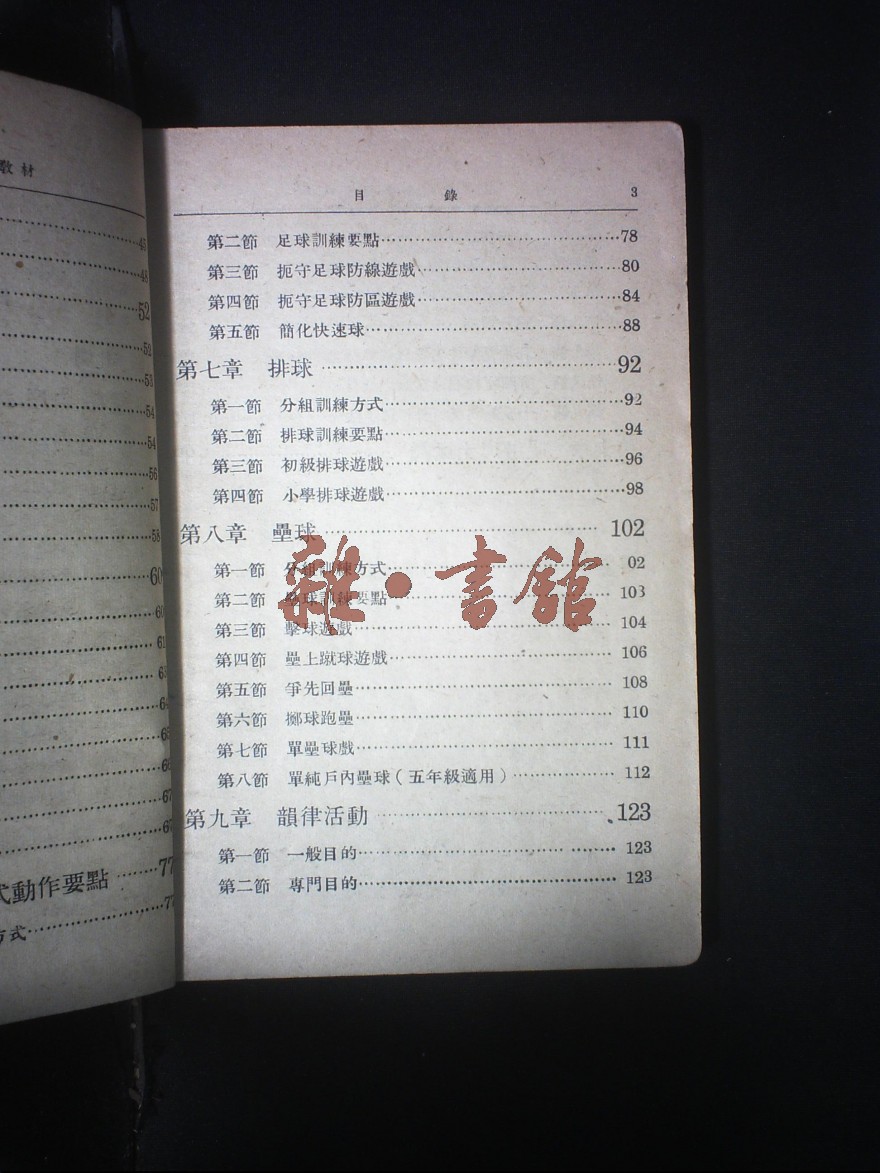 教材
47
48
52
52
53
54
54
56
57
58
60
60
61
63
64
65
66
67
67
式動作要點……77
方式……77
目錄 3
第二節 足球訓練要點……78
第三節 扼守足球防線遊戲……80
第四節 扼守足球防區遊戲……84
第五節 簡化快速球……88
第七章 排球……92
第一節 分組訓練方式……92
第二節 排球訓練要點……94
第三節 初級排球遊戲……96
第四節 小學排球遊戲……98
第八章 壘球……102
第一節 分組訓練方式……02
第二節 壘球訓練要點……103
第三節 擊球遊戲……104
第四節 壘上蹴球遊戲……106
第五節 爭先回壘……108
第六節 擲球跑壘……110
第七節 單壘球戲……111
第八節 單純戶內壘球(五年級適用)……112
第九章 韻律活動……123
第一節 一般目的……123
第二節 專門目的……123
雜·書館